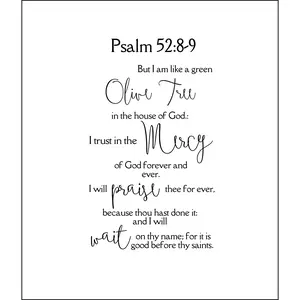 Psalm 52:8-9
But I am like a green
Olive Tree
in the house of God:
I trust in the Mercy
of God forever and
ever.
I will praise thee for ever,
because thou hast done it:
and I will
wait on thy name; for it is
good before thy saints.